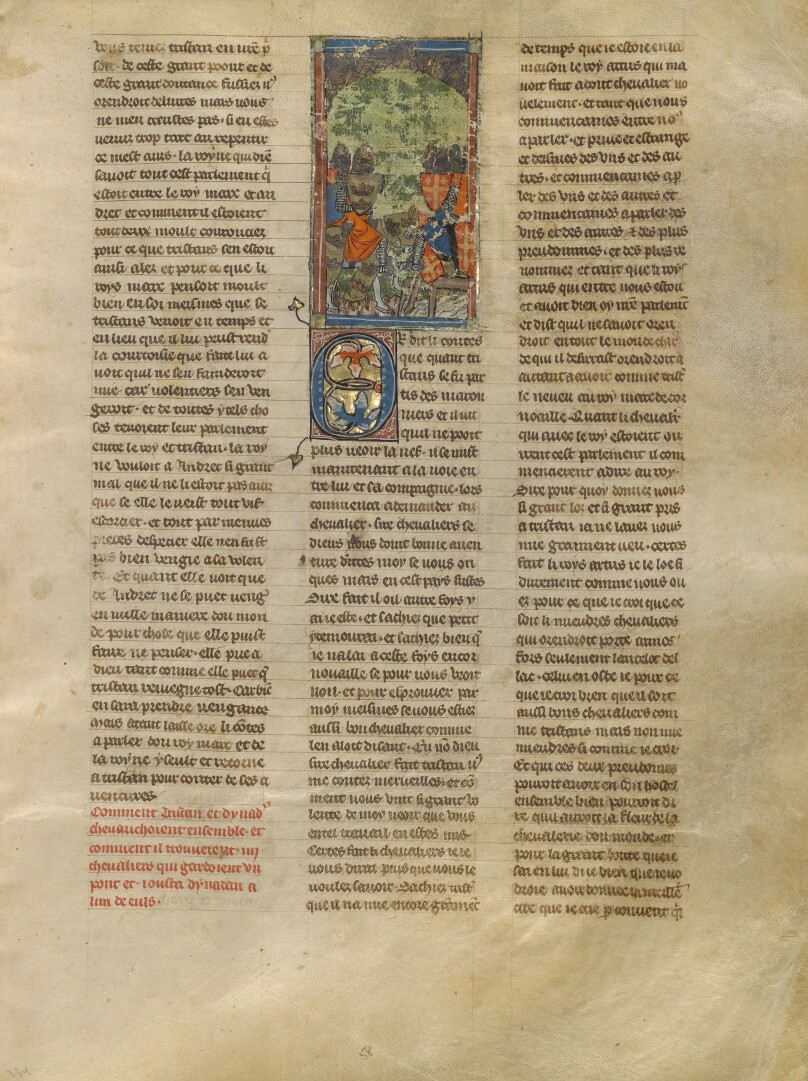 vous tenez tristan en vr̃e p̱
son. de ceste grant poour et de
ceste grant doutance fussiez u9
orendroit deliures mais vous
ne men creustes pas. si en estes
uenuz trop tart au repentir
ce mest auis. la royne qui biẽ
sauoit tout cest parlement q̃
estoit entre le roy marc et an
dret et comment il estoient
tout deux moult courouciez
pour ce que tristans sen estoit
ainsi alez et pour ce que li
roys marc pensoit moult
bien en soi meismes que se
tristans venoit en temps et
en lieu que il lui peust rendre
la courtoisie que faite lui a
uoit quil ne sen faindroit
mie. car volentiers sen ven
geroit. et de toutes yteles cho
ses tenoient leur parlement
entre le roy et tristan. la roy
ne vouloit a Andret si grant
mal que il ne li estoit pas auis
que se elle le veist tout vif
escorcier. et tout par menues
pieces despecier elle nen fust
pas bien vengie a sa volen
te. Et quant elle voit que
de Andret ne se puet uengier
en nulle maniere dou mon
de pour chose que elle puist
faire ne penser. elle prie a
dieu tant comme elle puet q̃
tristan reuiegne tost. Car biẽ
en saura prendre uengance
Mais atant laisse ore li cõtes
a parler dou roy marc et de
la royne yseult et retorne
a tristan pour conter de ses a
uentures
Comment Tristan et dynad
cheuauchoient ensemble et
comment il trouuerent .iiij.
cheualiers qui gardoient vn
pont et iousta dynadan a
lun de euls.
Or dit li contes
que quant tri
stans se fu par
tis des maron
niers et il uit
quil ne pooit
plus veoir la nef. il se mist
maintenant a la uoie en
tre lui et sa compaignie. lors
commenca a demander au
cheualier. sire cheualiers se
dieus vous doint bonne auen
ture dittes moy se vous on
ques mais en cest pays fustes
Sire fait il ou autre foys y
ai ie este. et sachiez que petit
y demourai. et sachiez bien q̃
ie nalai a ceste foys encor
nouaille se pour vous veoir
non. et pour esprouuer par
moy meismes se vous estiez
aussi bon cheualier comme
len aloit disant. En nõ dieu
sire cheualier fait tristan u9
me contez merueilles. et cõ
ment vous vint si grant vo
lente de moy ueoir que vous
entel trauail en estes mis
Certes fait li cheualiers ie le
vous dirai puis que vous le
voulez sauoir. Sachiez trist̃
que il na mie encore gram̃et
de temps que ie estoie en la
maison le roy artus qui ma
uoit fait a cort cheualier no
uelement. et tant que nous
commencames entre no9
a parler. et priue et estrange
et desisines des vns et des au
tres. et commencames a p̱
ler des vns et des autres et
commencames a parler des
vns et des autres. 7 des plus
preudommes. et des plus re
nommez et tant que li roys
artus qui entre nous estoit
et auoit bien oy nr̃e parlem̃t
et dist quil ne sauoit oren
droit en tout le monde ch̃r
de qui il desirrast orendroit a
autant auoir comme trist̃
le neueu au roy marc de cor
noaille. Quant li cheualr̃
qui auec le roy estoient ou
irent cest parlement il com
mencerent a dire au roy.
Sire pour quoy donnez vous
si grant los et si grant pris
a tristan ia ne lauez vous
mie gramment ueu. certes
fait li roys artus ie le loe si
durement comme vous oi
ez pour ce que ie croi que ce
soit li mieudres cheualiers
qui orendroit porte armes
fors seulement lancelot del
lac. celui en oste ie pour ce
que ie croi bien que il soit
aussi bons cheualiers com
me tristans mais non mie
mieudres si comme ie croi.
Et qui ces deux preudomes
pourroit auoir en son hostel
ensemble bien pourroit di
re qui auroit la fleur de la
cheualerie dou monde. et
pour la grant bonte que ie
sai en lui di ie bien que ie uo
droie auoir donnee la meillẽ
cite que ie aie p̱ conuent q̃
58